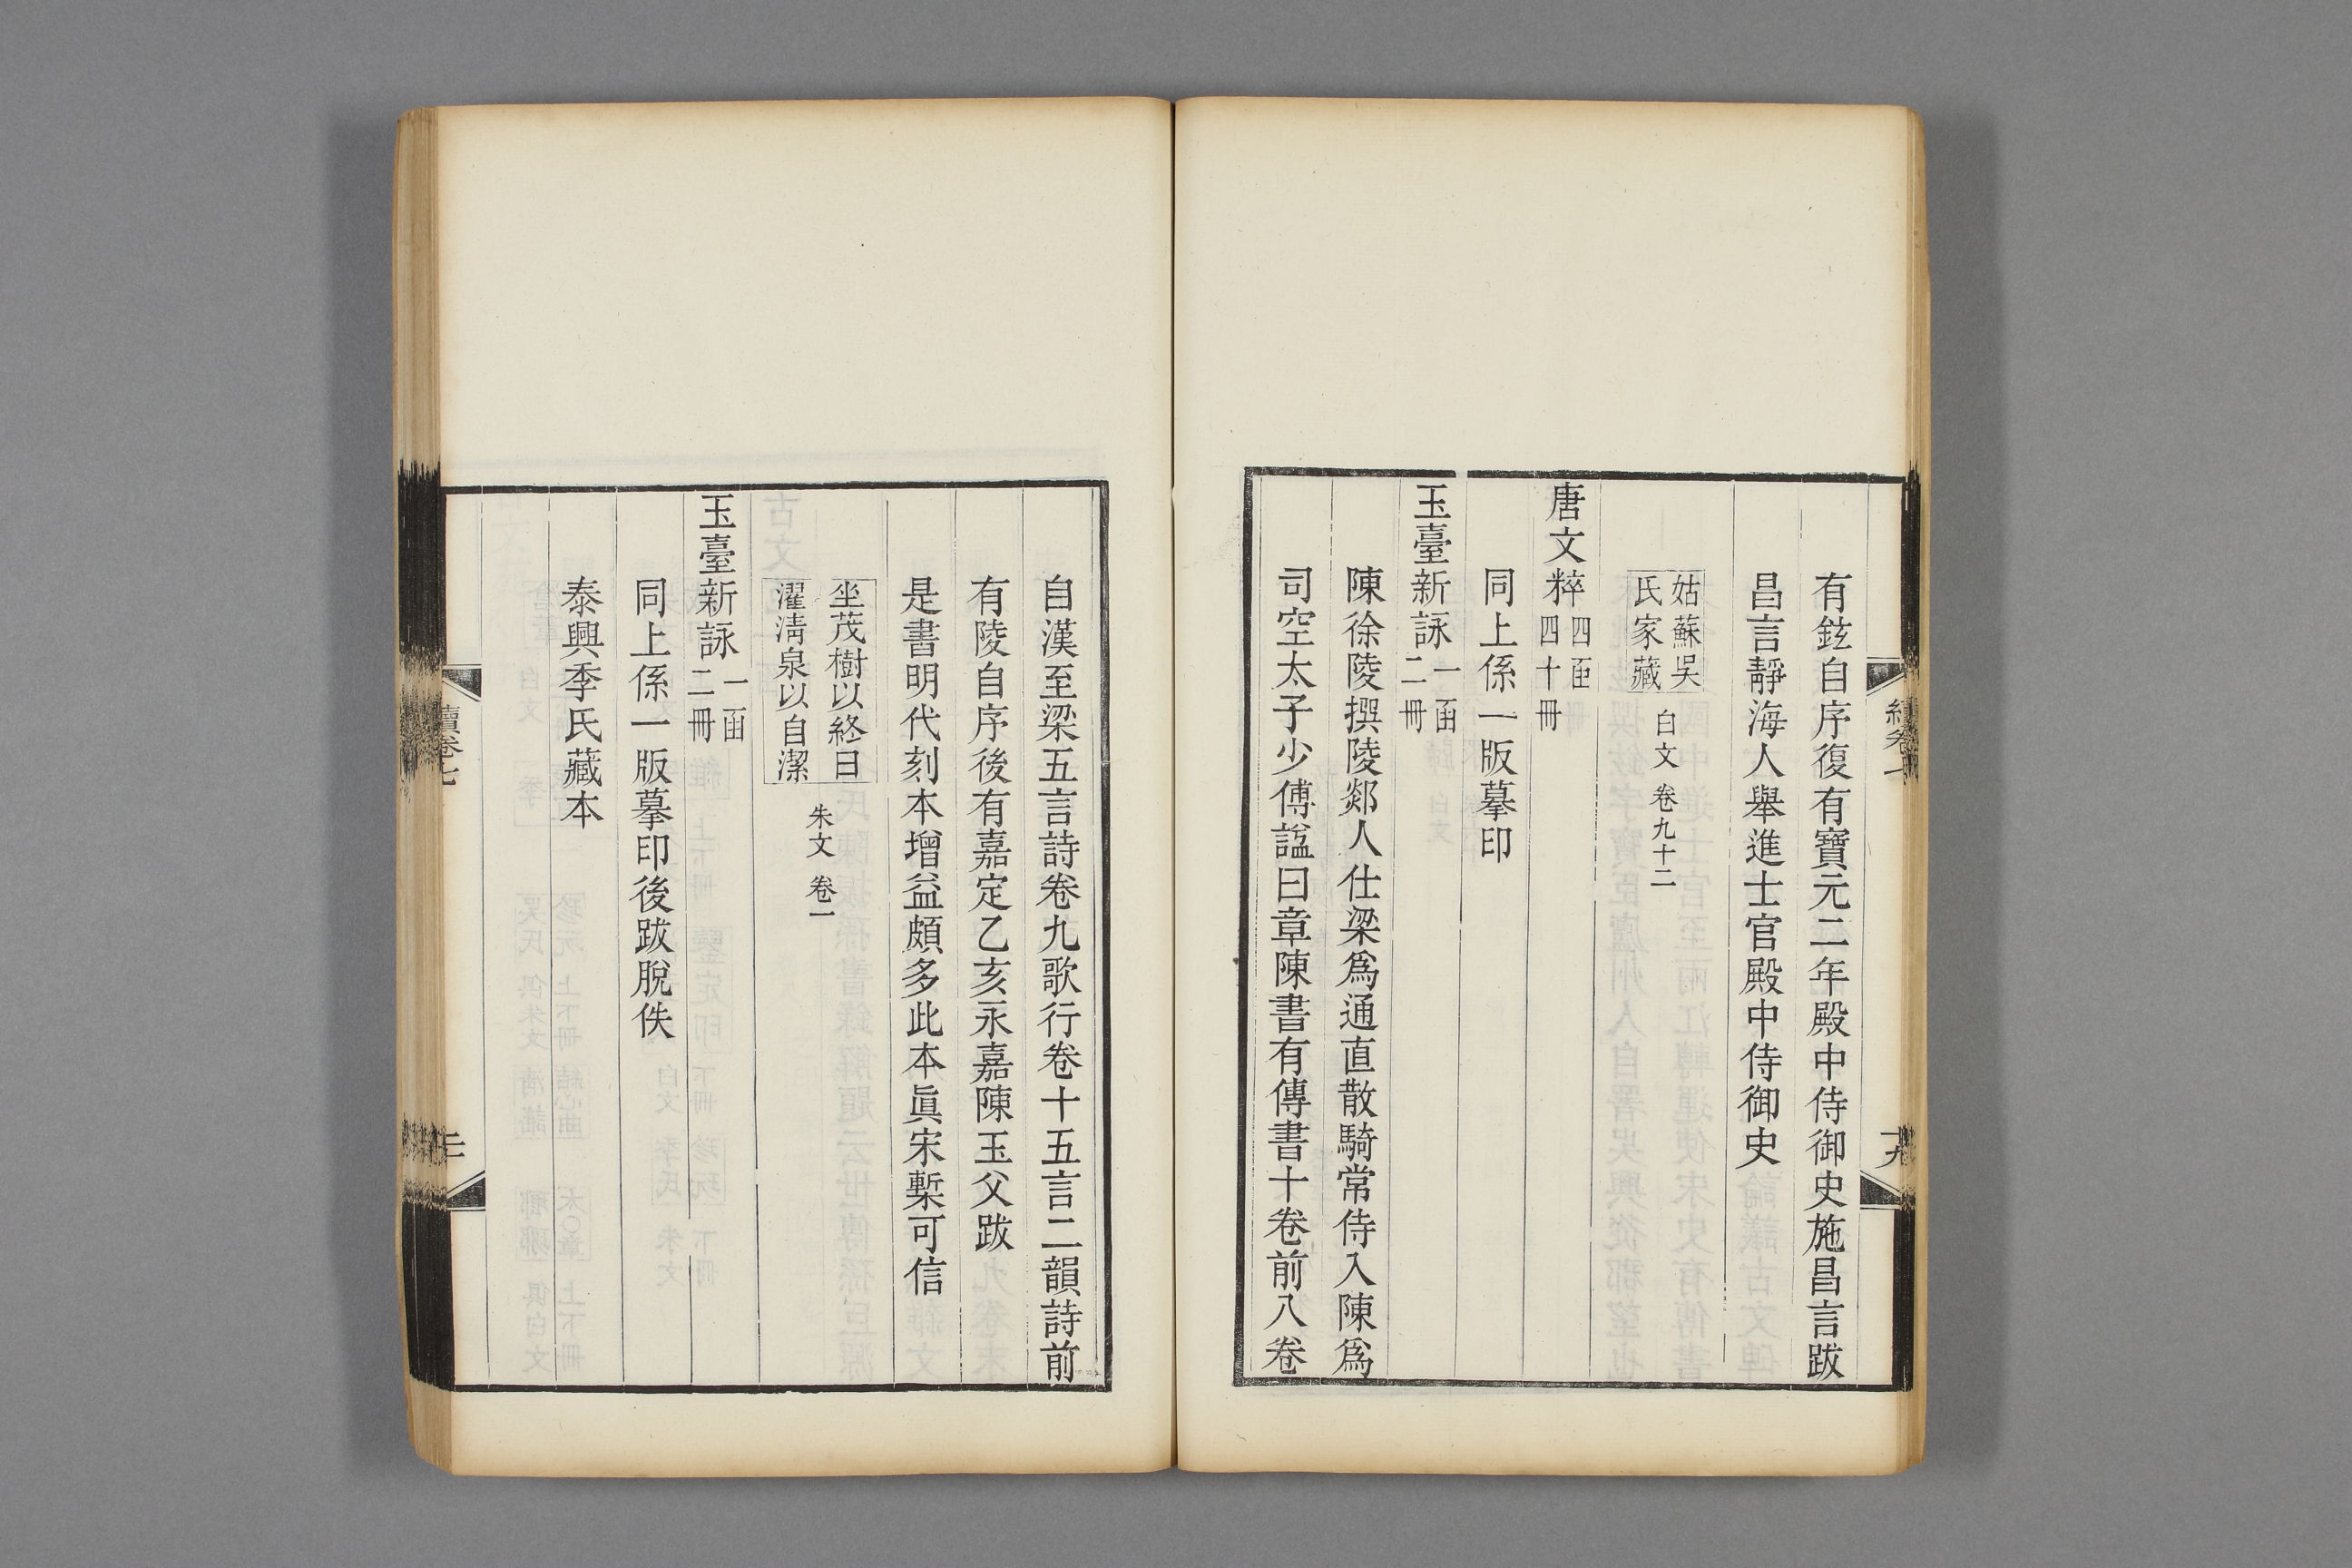 有鉉自序復有寶元二年殿中侍御史施昌言跋
昌言靜海人舉進士官殿中侍御史
姑蘇吳
氏家藏
白文 卷九十二
唐文粹
四函
四十冊
同上係一版摹印
玉臺新詠
一函
二冊
陳徐陵撰陵郯人仕梁爲通直散騎常侍入陳爲
司空太子少傅諡曰章陳書有傳書十卷前八卷
自漢至梁五言詩卷九歌行卷十五言二韻詩前
有陵自序後有嘉定乙亥永嘉陳玉父跋
是書明代刻本增益頗多此本眞宋槧可信
坐茂樹以終日
濯淸泉以自潔
朱文 卷一
玉臺新詠
一函
二冊
同上係一版摹印後跋脫佚
泰興季氏藏本
續卷七